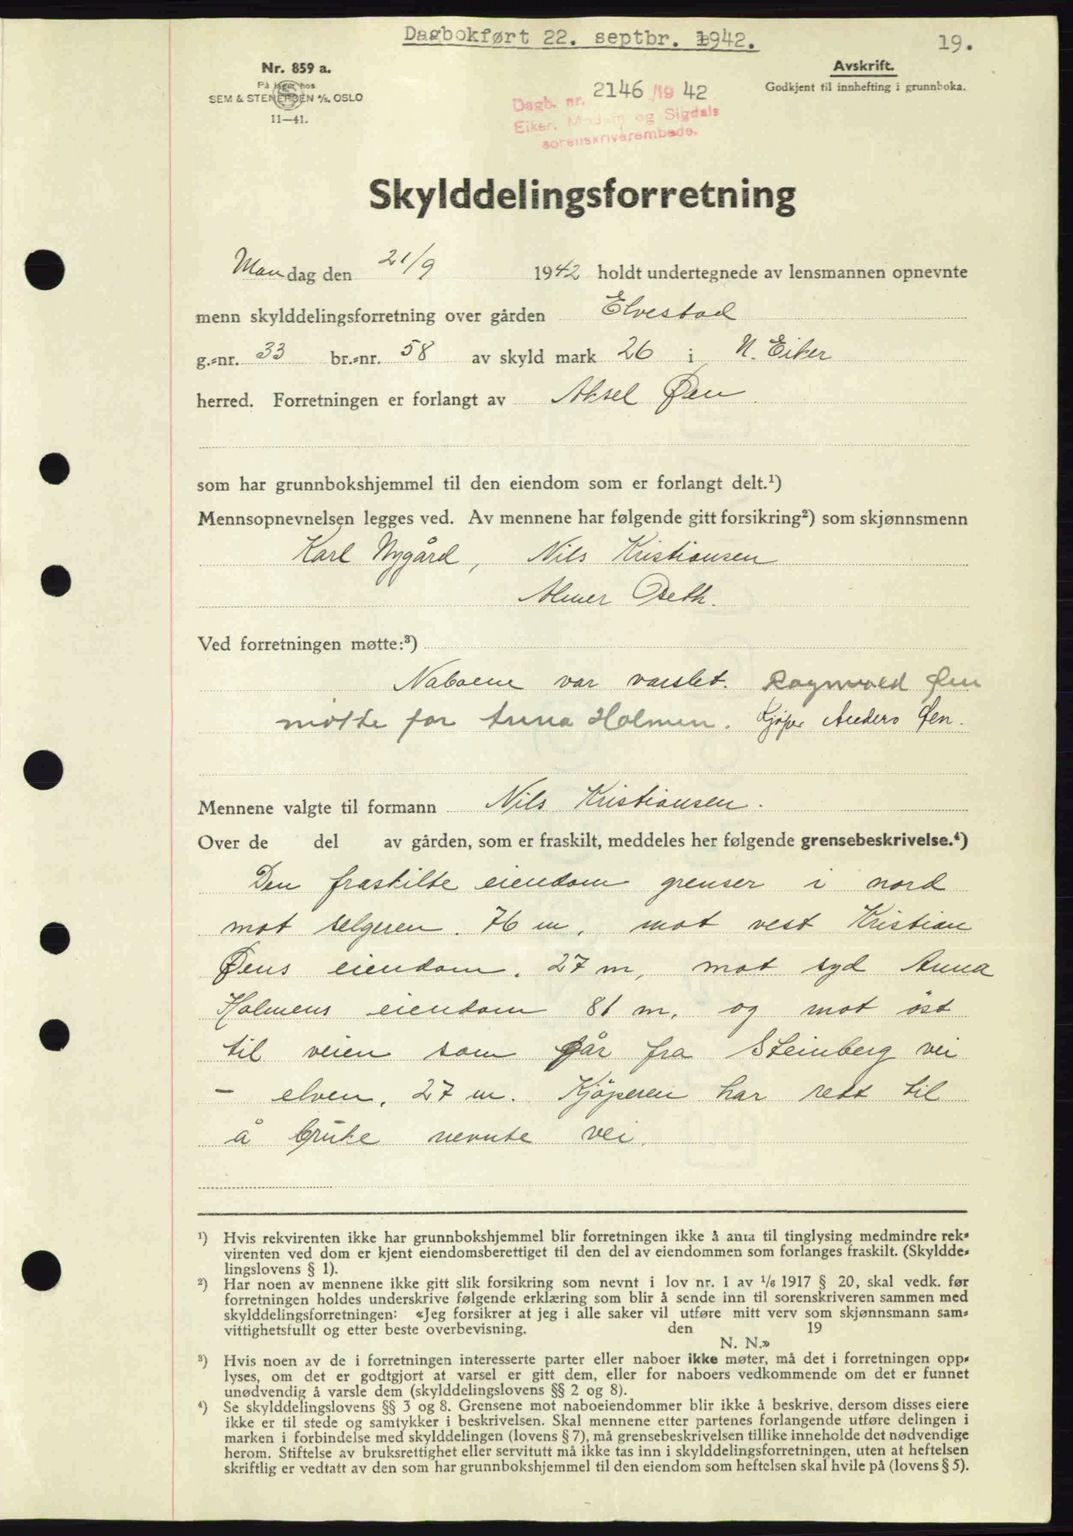 Dagbokført 22. septbr. 1942.
19.
Nr. 859 a.
På lager hos
SEM & STENERSEN A/S. OSLO
11—41.
Avskrift.
Godkjent til innhefting i grunnboka.
Dagb. nr. 2146/1942
Eiker, Modum og Sigdals
sorenskriverembede.
Skylddelingsforretning
Mandag den 21/9 1942 holdt undertegnede av lensmannen opnevnte
menn skylddelingsforretning over gården Elvestad
g.-nr. 33 br.-nr. 58 av skyld mark 26 i N. Eiker
herred. Forretningen er forlangt av Aksel Øen.
som har grunnbokshjemmel til den eiendom som er forlangt delt.¹)
Mennsopnevnelsen legges ved. Av mennene har følgende gitt forsikring²) som skjønnsmenn
Karl Nygård, Nils Kristiansen
Almer
Ved forretningen møtte:³)
Naboene var varslet. Ragnvald Øen
møtte for Anna Holmen. Kjöper Anders Øen.
Mennene valgte til formann Nils Kristiansen.
Over de del av gården, som er fraskilt, meddeles her følgende grensebeskrivelse.⁴)
Den fraskilte eiendom grenser i nord
mot selgeren. 76 m, mot vest Kristian
Øens eiendom. 27 m, mot syd Anna
Holmens eiendom 81 m. og mot öst
til veien som går fra Steinberg vei
- elven, 27 m. Kjöperen har rett til
å bruke nevnte vei.
¹) Hvis rekvirenten ikke har grunnbokshjemmel blir forretningen ikke å anta til tinglysing medmindre rek-
virenten ved dom er kjent eiendomsberettiget til den del av eiendommen som forlanges fraskilt. (Skyldde-
lingslovens § 1).
²) Har noen av mennene ikke gitt slik forsikring som nevnt i lov nr. 1 av ¹/₆ 1917 § 20, skal vedk. før
forretningen holdes underskrive følgende erklæring som blir å sende inn til sorenskriveren sammen med
skylddelingsforretningen: «Jeg forsikrer at jeg i alle saker vil utføre mitt verv som skjønnsmann sam-
vittighetsfullt og etter beste overbevisning. den 19
N. N.»
³) Hvis noen av de i forretningen interesserte parter eller naboer ikke møter, må det i forretningen opp-
lyses, om det er godtgjort at varsel er gitt dem, eller for naboers vedkommende om det er funnet
unødvendig å varsle dem (skylddelingslovens §§ 2 og 8).
⁴) Se skylddelingslovens §§ 3 og 8. Grensene mot naboeiendommer blir ikke å beskrive, dersom disses eiere
ikke er til stede og samtykker i beskrivelsen. Skal mennene etter partenes forlangende utføre delingen i
marken i forbindelse med skylddelingen (lovens § 7), må grensebeskrivelsen tillike inneholde det nødvendige
herom. Stiftelse av bruksrettighet eller servitutt må ikke tas inn i skylddelingsforretningen, uten at heftelsen
skriftlig er vedtatt av den som har grunnbokshjemmel til den eiendom som heftelsen skal hvile på (lovens § 5).